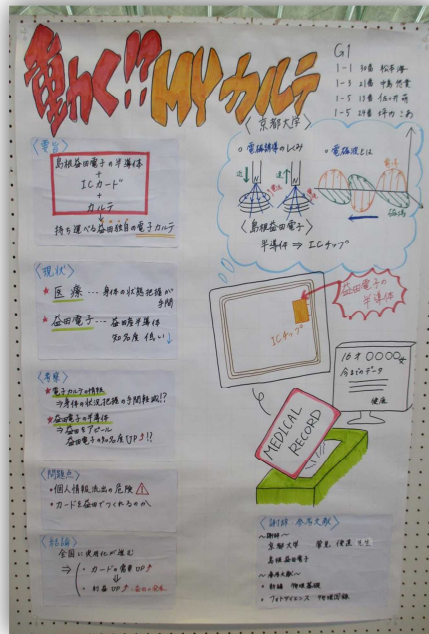 動く!? MYカルテ
G1
1-1 30番
1-3 21番
1-5 13番
1-5 29番
〈要旨〉
島根益田電子の半導体
+
ICカード
+
カルテ
持ち運べる益田独自の電子カルテ
〈現状〉
★医療…身体の状態把握が
手間
★益田電子…益田産半導体
知名度 低い↓
〈考察〉
★電子カルテの情報
⇒身体の状況把握の手間軽減!?
★益田電子の半導体
⇒益田をアピール
益田電子の知名度UP↑!?
〈問題点〉
・個人情報流出の危険
・カードを益田でつくれるのか
〈結論〉
全国に実用化が進む
⇒ ・カードの需要UP↑
↓
・利益UP↑
〈京都大学〉
○電磁誘導のしくみ
○電磁波とは
近↓
速↑
N
N
電場
磁場
〈島根益田電子〉
半導体 ⇒ ICチップ
益田電子の
半導体
ICチップ
16才 〇〇〇〇
今までのデータ
健康
MEDICAL
RECORD
〈謝辞 参考文献〉
〜謝辞〜
京都大学 先生
島根益田電子
〜参考文献〜
・新編 物理基礎
・フォトサイエンス 物理図録